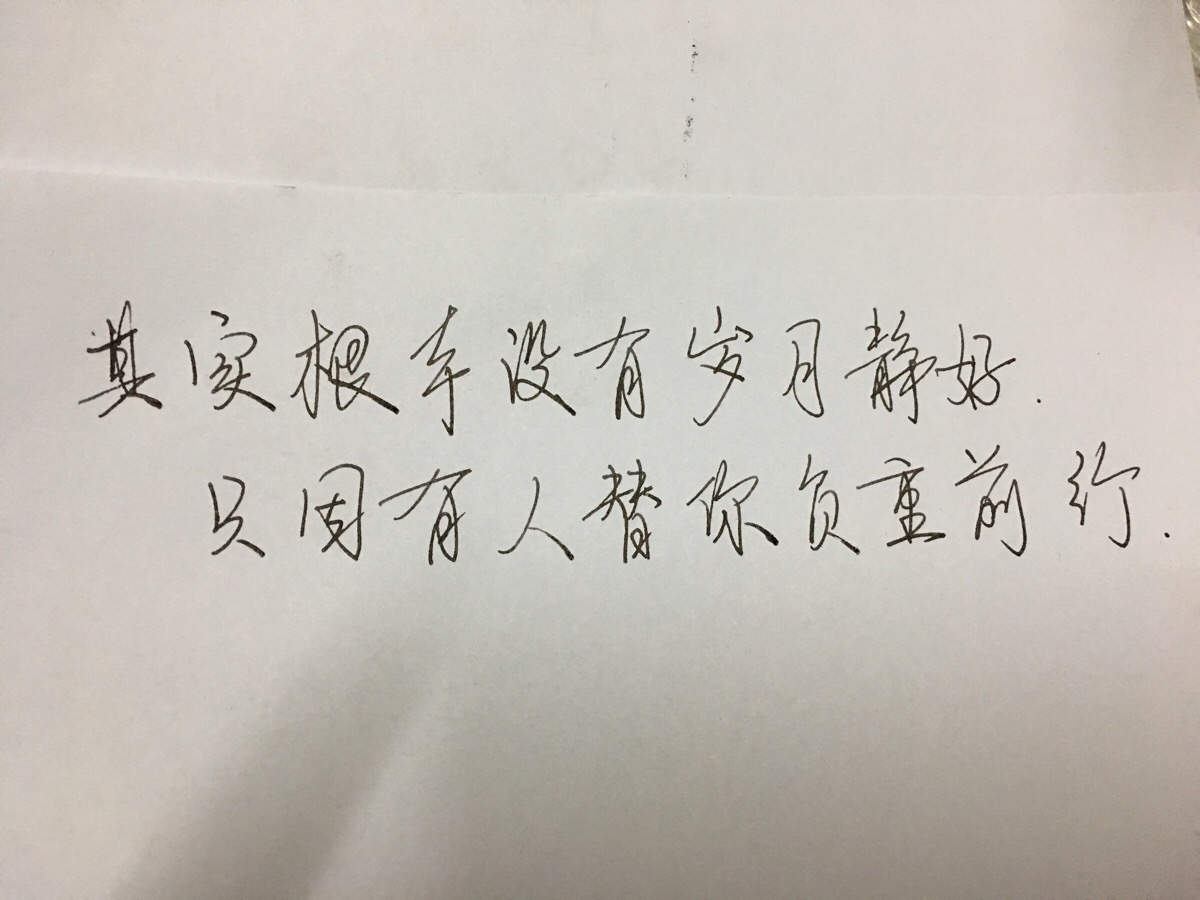 其实根本没有岁月静好.
只因有人替你负重前行.